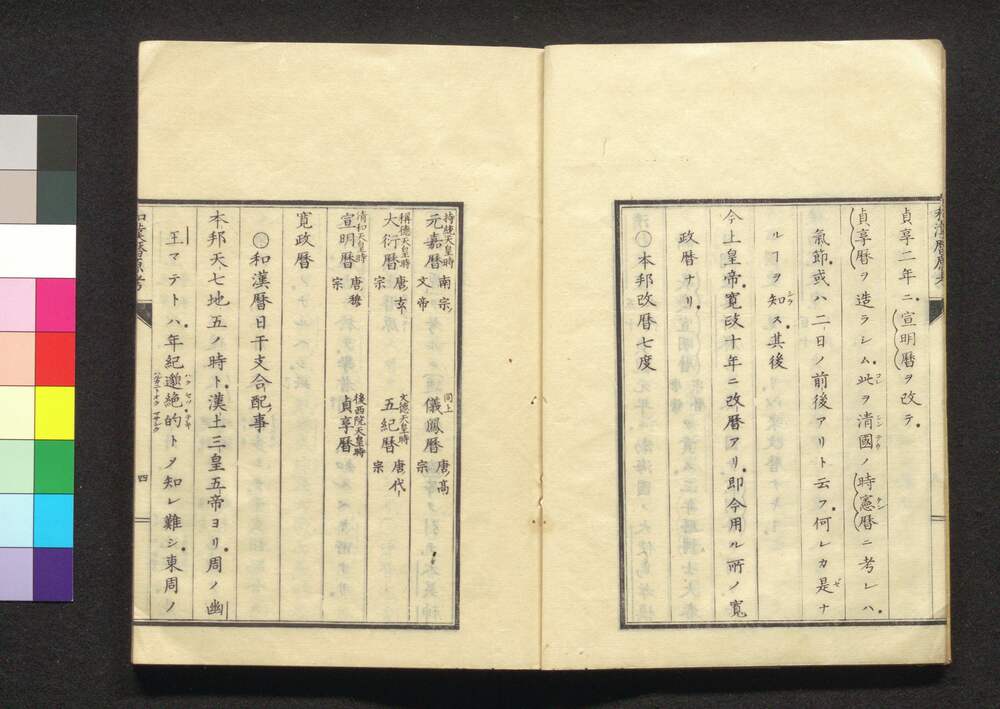 貞享二年ニ宣明暦ヲ改テ
貞享暦ヲ造ラシム此ヲ清國ノ時憲暦ニ考レハ
氣節或ハ二日ノ前後アリト云フ何レカ是ナ
ルヿヲ知ス其後
今上皇帝寛政十年ニ改暦アリ即今用ル所ノ寛
政暦ナリ
〇本邦改暦七度
持統天皇時 元嘉暦 南宗ノ文帝 同上 儀鳳暦 唐ノ高宗
稱德天皇時 大衍暦 唐ノ玄宗 文德天皇時 五紀暦 唐ノ代宗
清和天皇時 宣明暦 唐ノ穆宗 後西院天皇時 貞享暦
寛政暦
〇和漢暦日干支合配ノ事
本邦天七地五ノ時ト漢土三皇五帝ヨリ周ノ幽
王マテトハ年紀邈絶的トヲ知レ難シ東周ノ
四